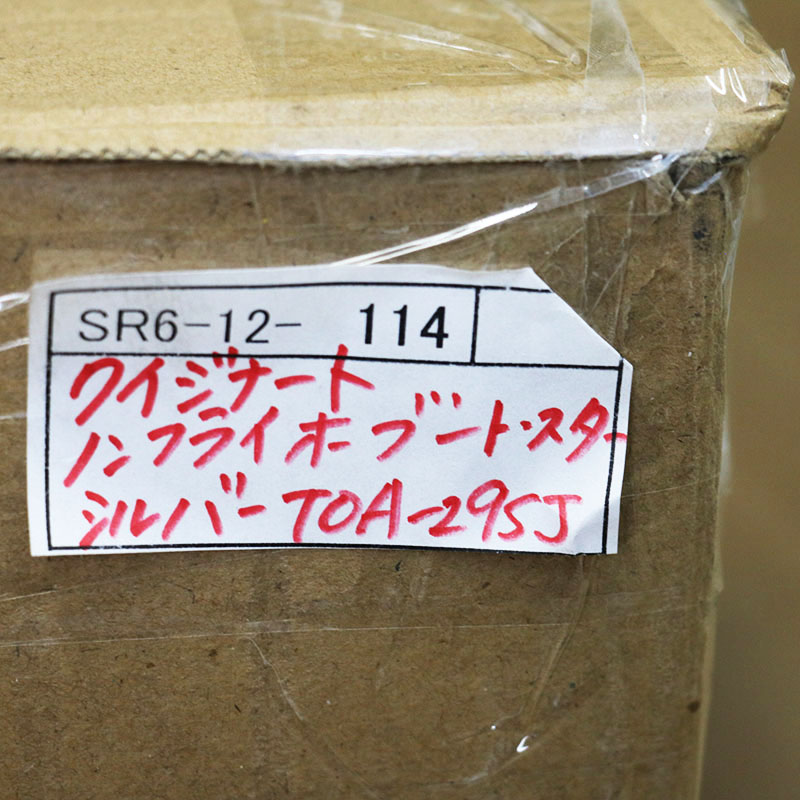 SR6-12- 114
クイジナート
ノンフライオーブント・スター
シルバー TOA-29SJ